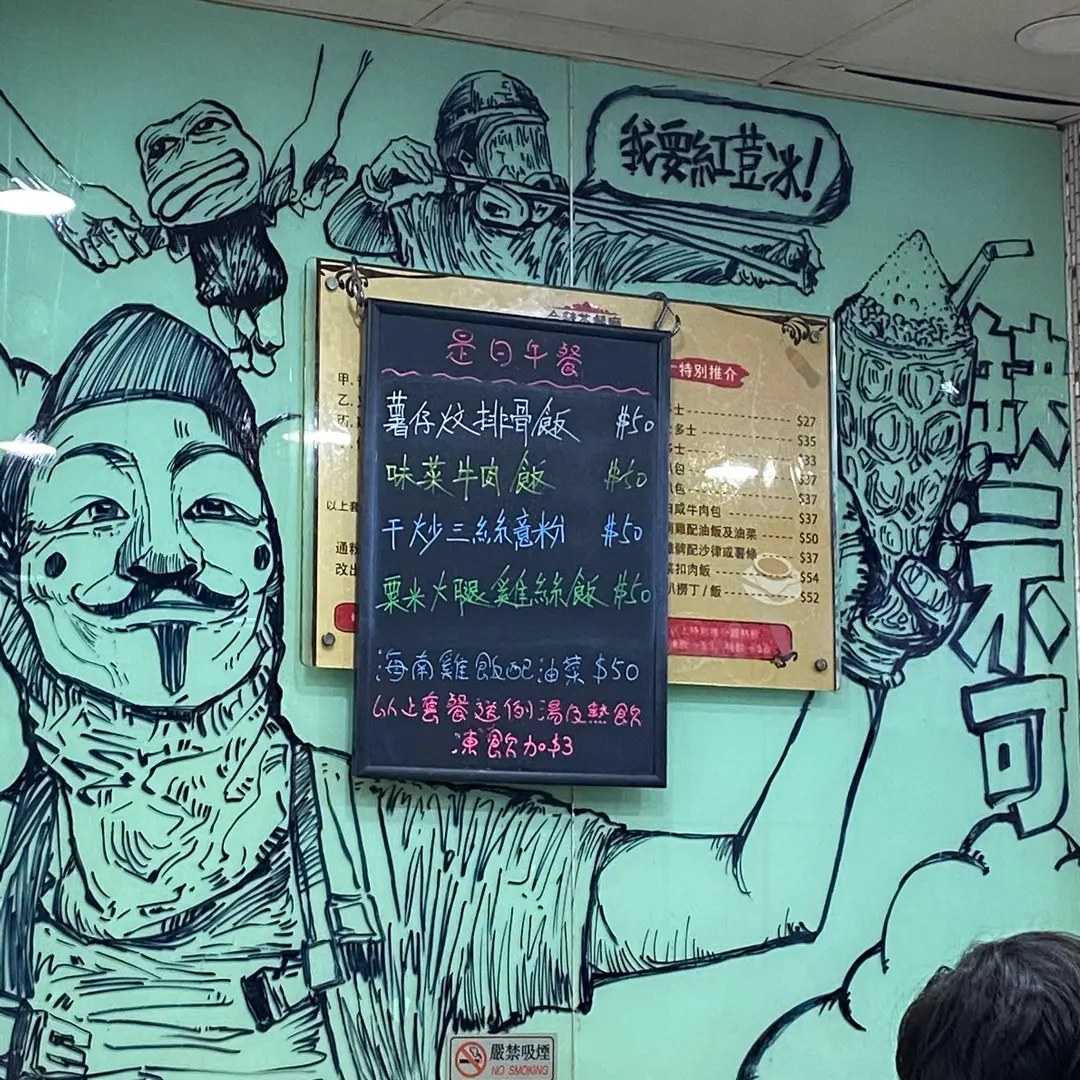 我要紅荳冰!
金發茶餐廳
是日午餐
薯仔炆排骨飯 $50
味菜牛肉飯 $50
干炒三絲意粉 $50
粟米大腿雞絲飯 $50
海南雞飯配油菜 $50
以上套餐送例湯及熱飲
凍飲加$3
甲.
乙.
丙.
以上
通粉
改
特別推介
士 $27
多士 $35
多士 $33
包 $37
包 $37
咸牛肉包 $37
雞配油飯及油菜 $50
髀配沙律或薯條 $37
扣肉飯 $54
扒撈丁/飯 $52
缺一不可
嚴禁吸煙
NO SMOKING